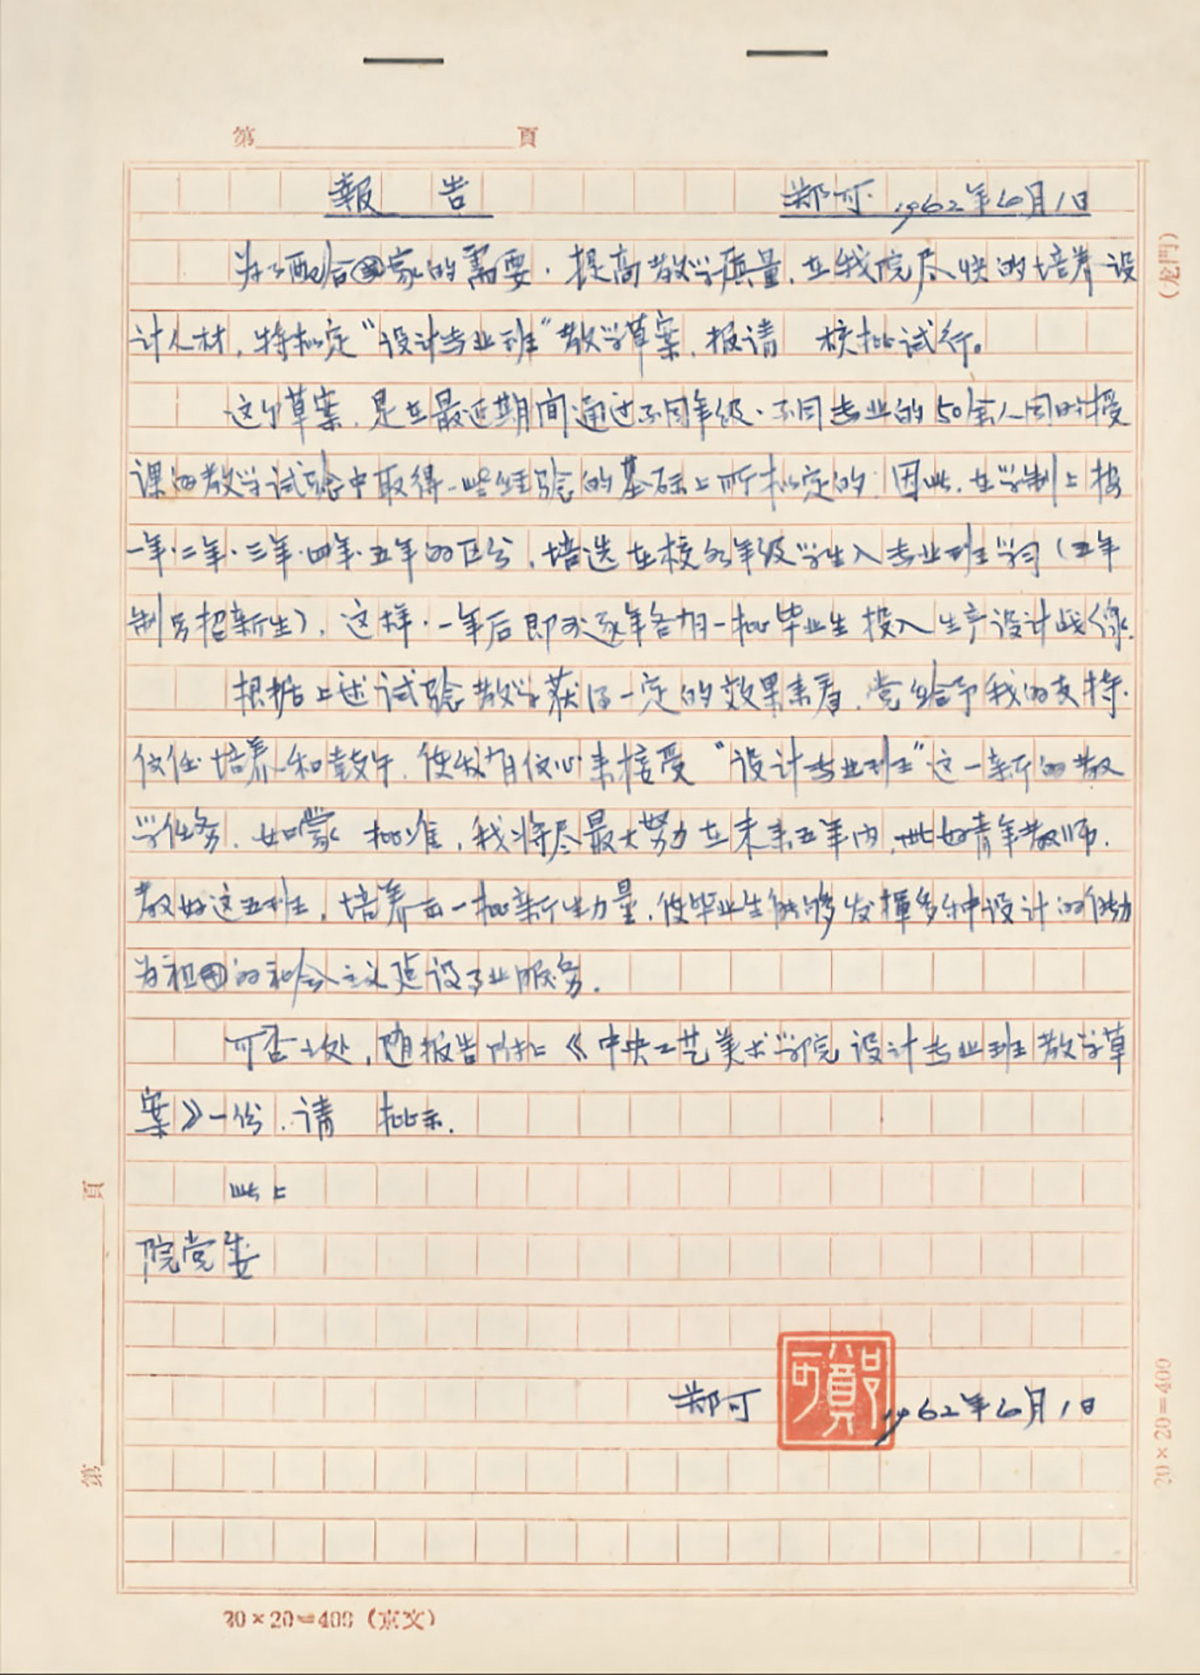 第 頁
報 告 郑可 1962年6月1日
为了配合国家的需要，提高教学质量，在我院尽快的培养设
计人材，特拟定“设计专业班”教学草案，报请 核批试行。
这个草案，是在最近期间通过不同年级、不同专业的50余人同时授
课的教学试验中取得一些经验的基础上所拟定的，因此，在学制上按
一年、二年、三年、四年、五年的区分，培选在校各年级学生入专业班学习（五年
制另招新生），这样，一年后即可逐年各有一批毕业生投入生产设计战线。
根据上述试验教学获得一定的效果来看，党给予我的支持、
信任、培养和鼓午，使我有信心来接受“设计专业班”这一新的教
学任务，如蒙 批准，我将尽最大努力在未来五年内， 好青年教师，
教好这五班，培养出一批新生力量，使毕业生能够发揮多种设计的能力
为祖国的社会主义建设事业服务。
可否之处，随报告附上《中央工艺美术学院设计专业班教学草
案》一份，请 批示。
此上
院党委
郑可 1962年6月1日
鄭可
20×20=400（京文）
第 頁
20×20=400